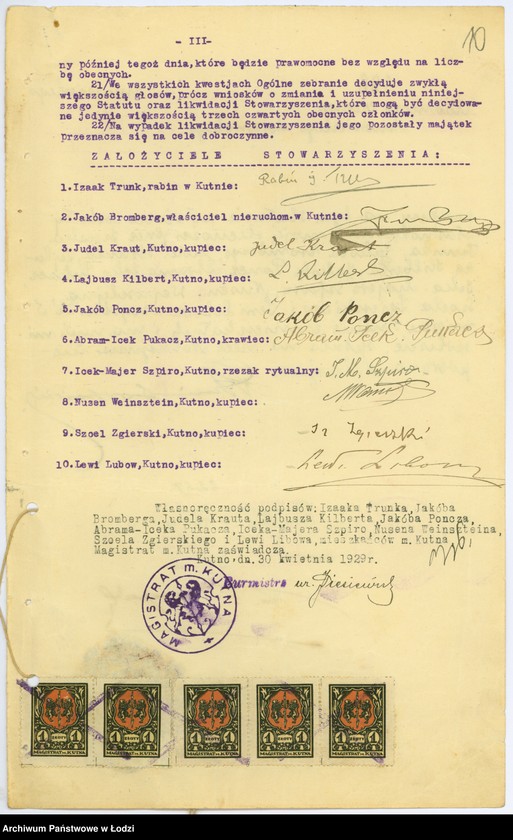 - III-
10
ny później tegoż dnia, które będzie prawomocne bez względu na licz-
bę obecnych.
21/Wa wszystkich kwestjach Ogólne zebranie decyduje zwykłą
większością głosów, prócz wniosków o zmiania i uzupełnieniu niniej-
szego Statutu oraz likwidacji Stowarzyszenia, które mogą być decydowa-
ne jedynie większością trzech czwartych obecnych członków.
22/Na wypadek likwidacji Stowarzyszenia jego pozostały majątek
przeznacza się na cele dobroczynne.
ZAŁOŻYCIELE STOWARZYSZENIA:
1. Izaak Trunk, rabin w Kutnie: Rabin
2. Jakób Bromberg, właściciel nieruchom. w Kutnie:
3. Judel Kraut, Kutno, kupiec: Judel Kraut
4. Lajbusz Kilbert, Kutno, kupiec: L. Kilbert
5. Jakób Poncz, Kutno, kupiec: Jakób Poncz
6. Abram-Icek Pukacz, Kutno, krawiec: Abram Icek Pukacz
7. Icek-Majer Szpiro, Kutno, rzezak rytualny: I. M. Szpiro
8. Nusen Weinsztein, Kutno, kupiec:
9. Szoel Zgierski, Kutno, kupiec: Zgierski
10. Lewi Lubow, Kutno, kupiec: Lewi
Własnoręczność podpisów: Izaaka Trunka, Jakóba
Bromberga, Judela Krauta, Lajbusza Kilberta, Jakóba Poncza,
Abrama-Iceka Pukacza, Iceka-Majera Szpiro, Nusena Weinszteina,
Szoela Zgierskiego i Lewi Libowa, mieszkańców m. Kutna
Magistrat m. Kutna zaświadcza.
Kutno, dn. 30 kwietnia 1929r.
Burmistrz
MAGISTRAT m. KUTNA
1 ZŁOTY 1 1 ZŁOTY 1 1 ZŁOTY 1 1 ZŁOTY 1 1 ZŁOTY 1
MAGISTRAT m. KUTNA MAGISTRAT m. KUTNA MAGISTRAT m. KUTNA MAGISTRAT m. KUTNA MAGISTRAT m. KUTNA
Archiwum Państwowe w Łodzi